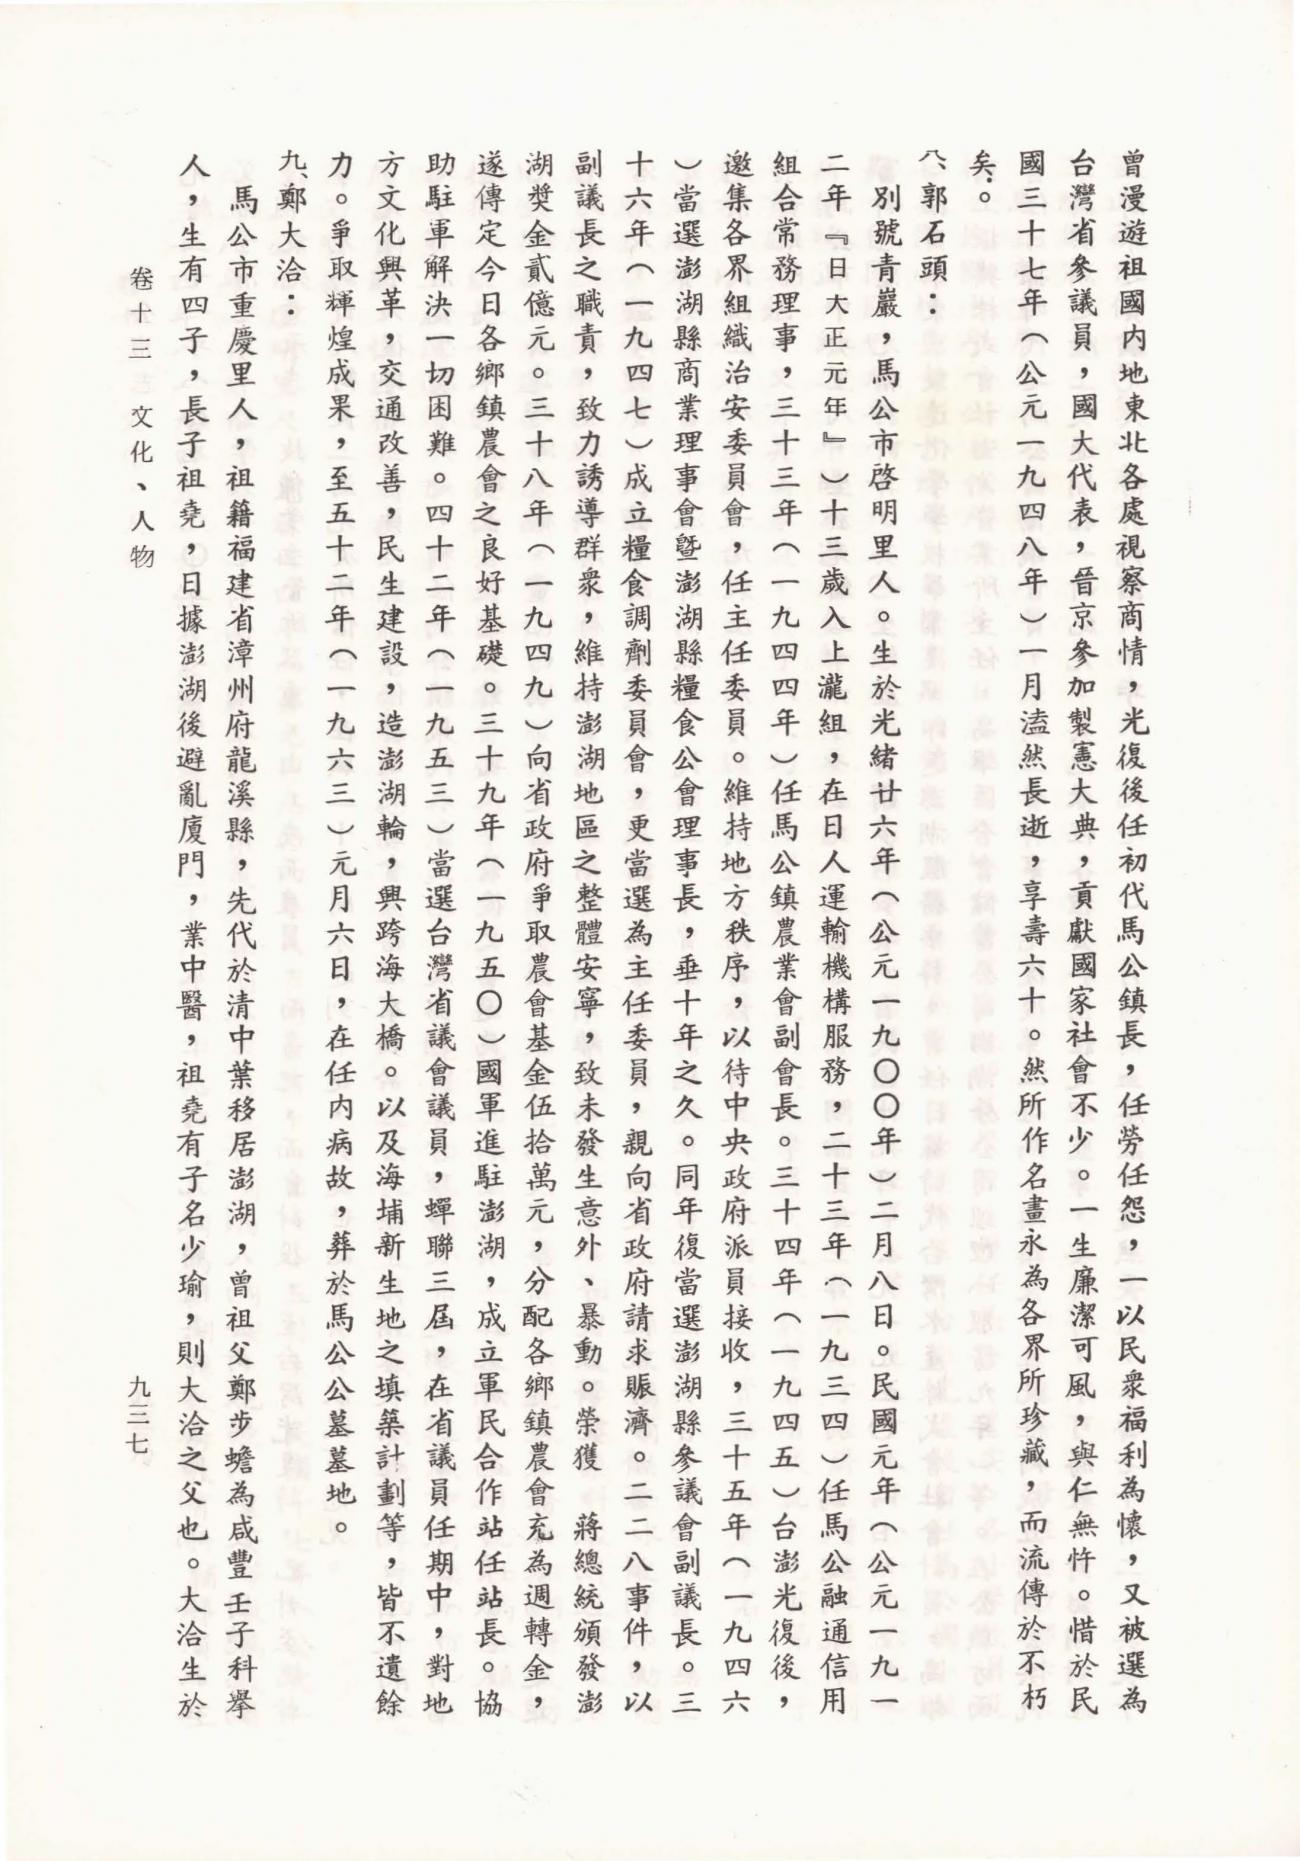 曾漫遊祖國內地東北各處視察商情，光復後任初代馬公鎮長，任勞任怨，一以民衆福利為懷，又被選為
台灣省參議員，國大代表，晉京參加製憲大典，貢獻國家社會不少。一生廉潔可風，與仁無忤。惜於民
國三十七年（公元一九四八年）一月溘然長逝，享壽六十。然所作名畫永為各界所珍藏，而流傳於不朽
矣。
八、郭石頭：
別號青巖，馬公市啓明里人。生於光緒廿六年（公元一九〇〇年）二月八日。民國元年（公元一九一
二年『日大正元年』）十三歲入上瀧組，在日人運輸機構服務，二十三年（一九三四）任馬公融通信用
組合常務理事，三十三年（一九四四年）任馬公鎮農業會副會長。三十四年（一九四五）台澎光復後，
邀集各界組織治安委員會，任主任委員。維持地方秩序，以待中央政府派員接收，三十五年（一九四六
）當選澎湖縣商業理事會曁澎湖縣糧食公會理事長，垂十年之久。同年復當選澎湖縣參議會副議長。三
十六年（一九四七）成立糧食調劑委員會，更當選為主任委員，親向省政府請求賑濟。二二八事件，以
副議長之職責，致力誘導群衆，維持澎湖地區之整體安寧，致未發生意外、暴動。榮獲　蔣總統頒發澎
湖獎金貳億元。三十八年（一九四九）向省政府爭取農會基金伍拾萬元，分配各鄉鎮農會充為週轉金，
遂傳定今日各鄉鎮農會之良好基礎。三十九年（一九五〇）國軍進駐澎湖，成立軍民合作站任站長。協
助駐軍解決一切困難。四十二年（一九五三）當選台灣省議會議員，蟬聯三屆，在省議員任期中，對地
方文化興革，交通改善，民生建設，造澎湖輪，興跨海大橋。以及海埔新生地之填築計劃等，皆不遺餘
力。爭取輝煌成果，至五十二年（一九六三）元月六日，在任內病故，葬於馬公公墓墓地。
九、鄭大洽：
馬公市重慶里人，祖籍福建省漳州府龍溪縣，先代於清中葉移居澎湖，曾祖父鄭步蟾為咸豐壬子科舉
人，生有四子，長子祖堯，日據澎湖後避亂廈門，業中醫，祖堯有子名少瑜，則大洽之父也。大洽生於
卷十三　文化、人物
九三七